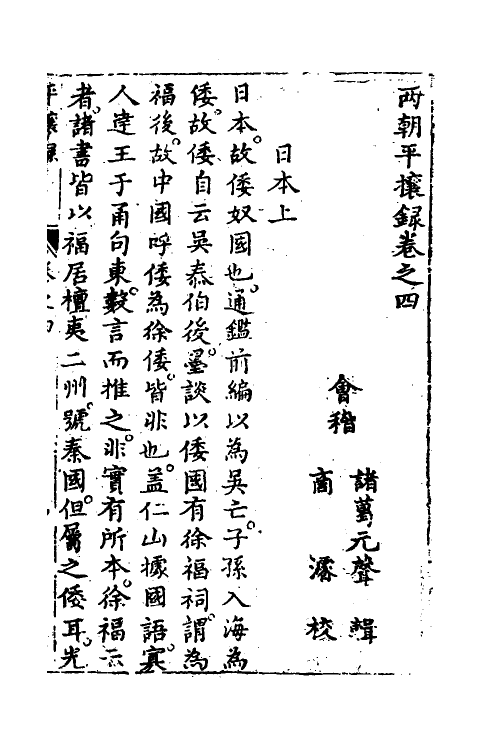 兩朝平攘録卷之四
會稽 諸葛元聲 輯
商濬 校
日本上
日本故倭奴國也通鑑前編以為吳亡子孫入海為
倭故倭自云吳泰伯後墨談以倭國有徐福祠謂為
福後故中國呼倭為徐倭皆非也盖仁山據國語寘
人逹王于甬句東數言而推之非實有所本徐福云
者諸書皆以福居檀夷二州號秦國但屬之倭耳光